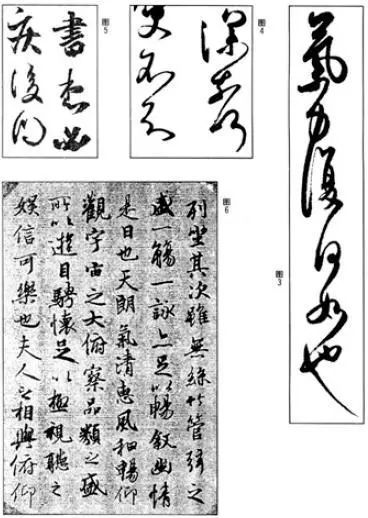 图5
图4
图3
氣力復何如也
图6
列坐其次雖無絲竹管弦之
盛一觴一詠亦足以暢敘幽情
是日也天朗氣清惠風和暢仰
觀宇宙之大俯察品類之盛
所以遊目騁懷足以極視聽之
娛信可樂也夫人之相與俯仰